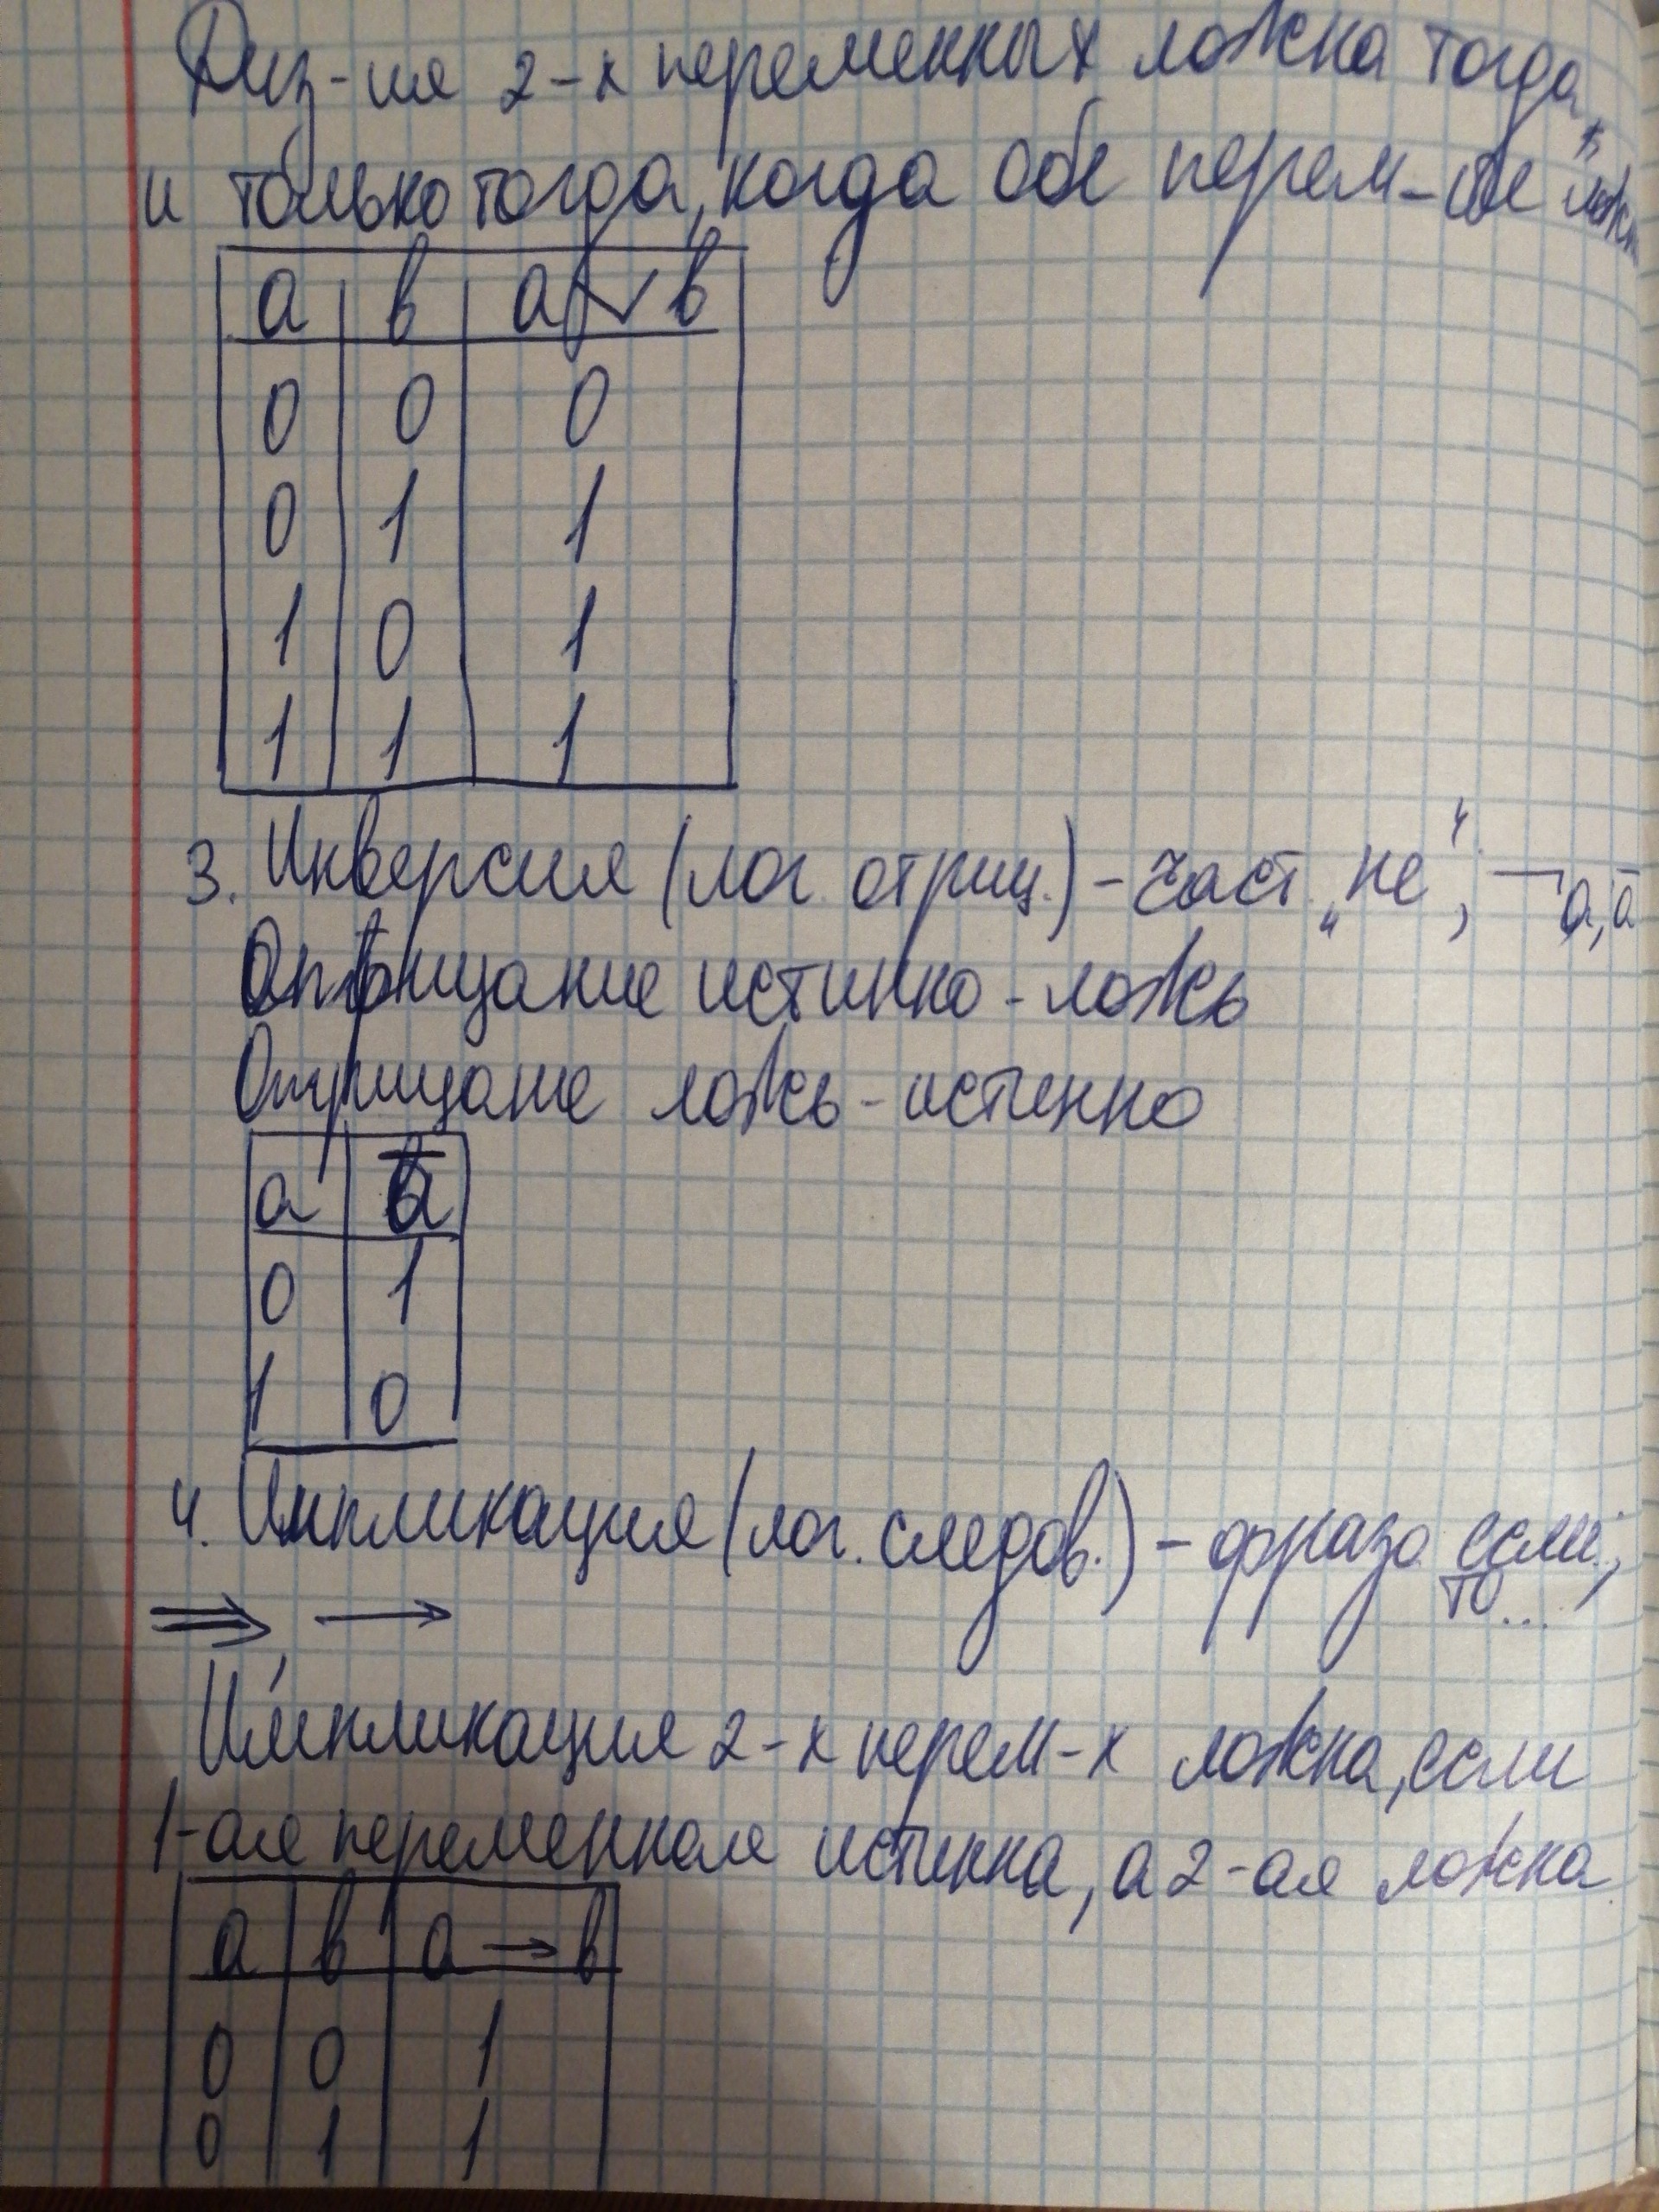 Диз-ия 2-х переменных ложна тогда,
и только тогда, когда обе перем-ые
а в а ∨ в
0 0 0
0 1 1
1 0 1
1 1 1
3. Инверсия (лог. отриц.) - част. „не“, ¬а, ā
Отрицание истинно - ложь
Отрицание ложь - истинно
а ā
0 1
1 0
4. Импликация (лог. следов.) - фраза если,
то...
⇒, →
Импликация 2-х перем-х ложна, если
1-ая переменная истинна, а 2-ая ложна
а в а → в
0 0 1
0 1 1